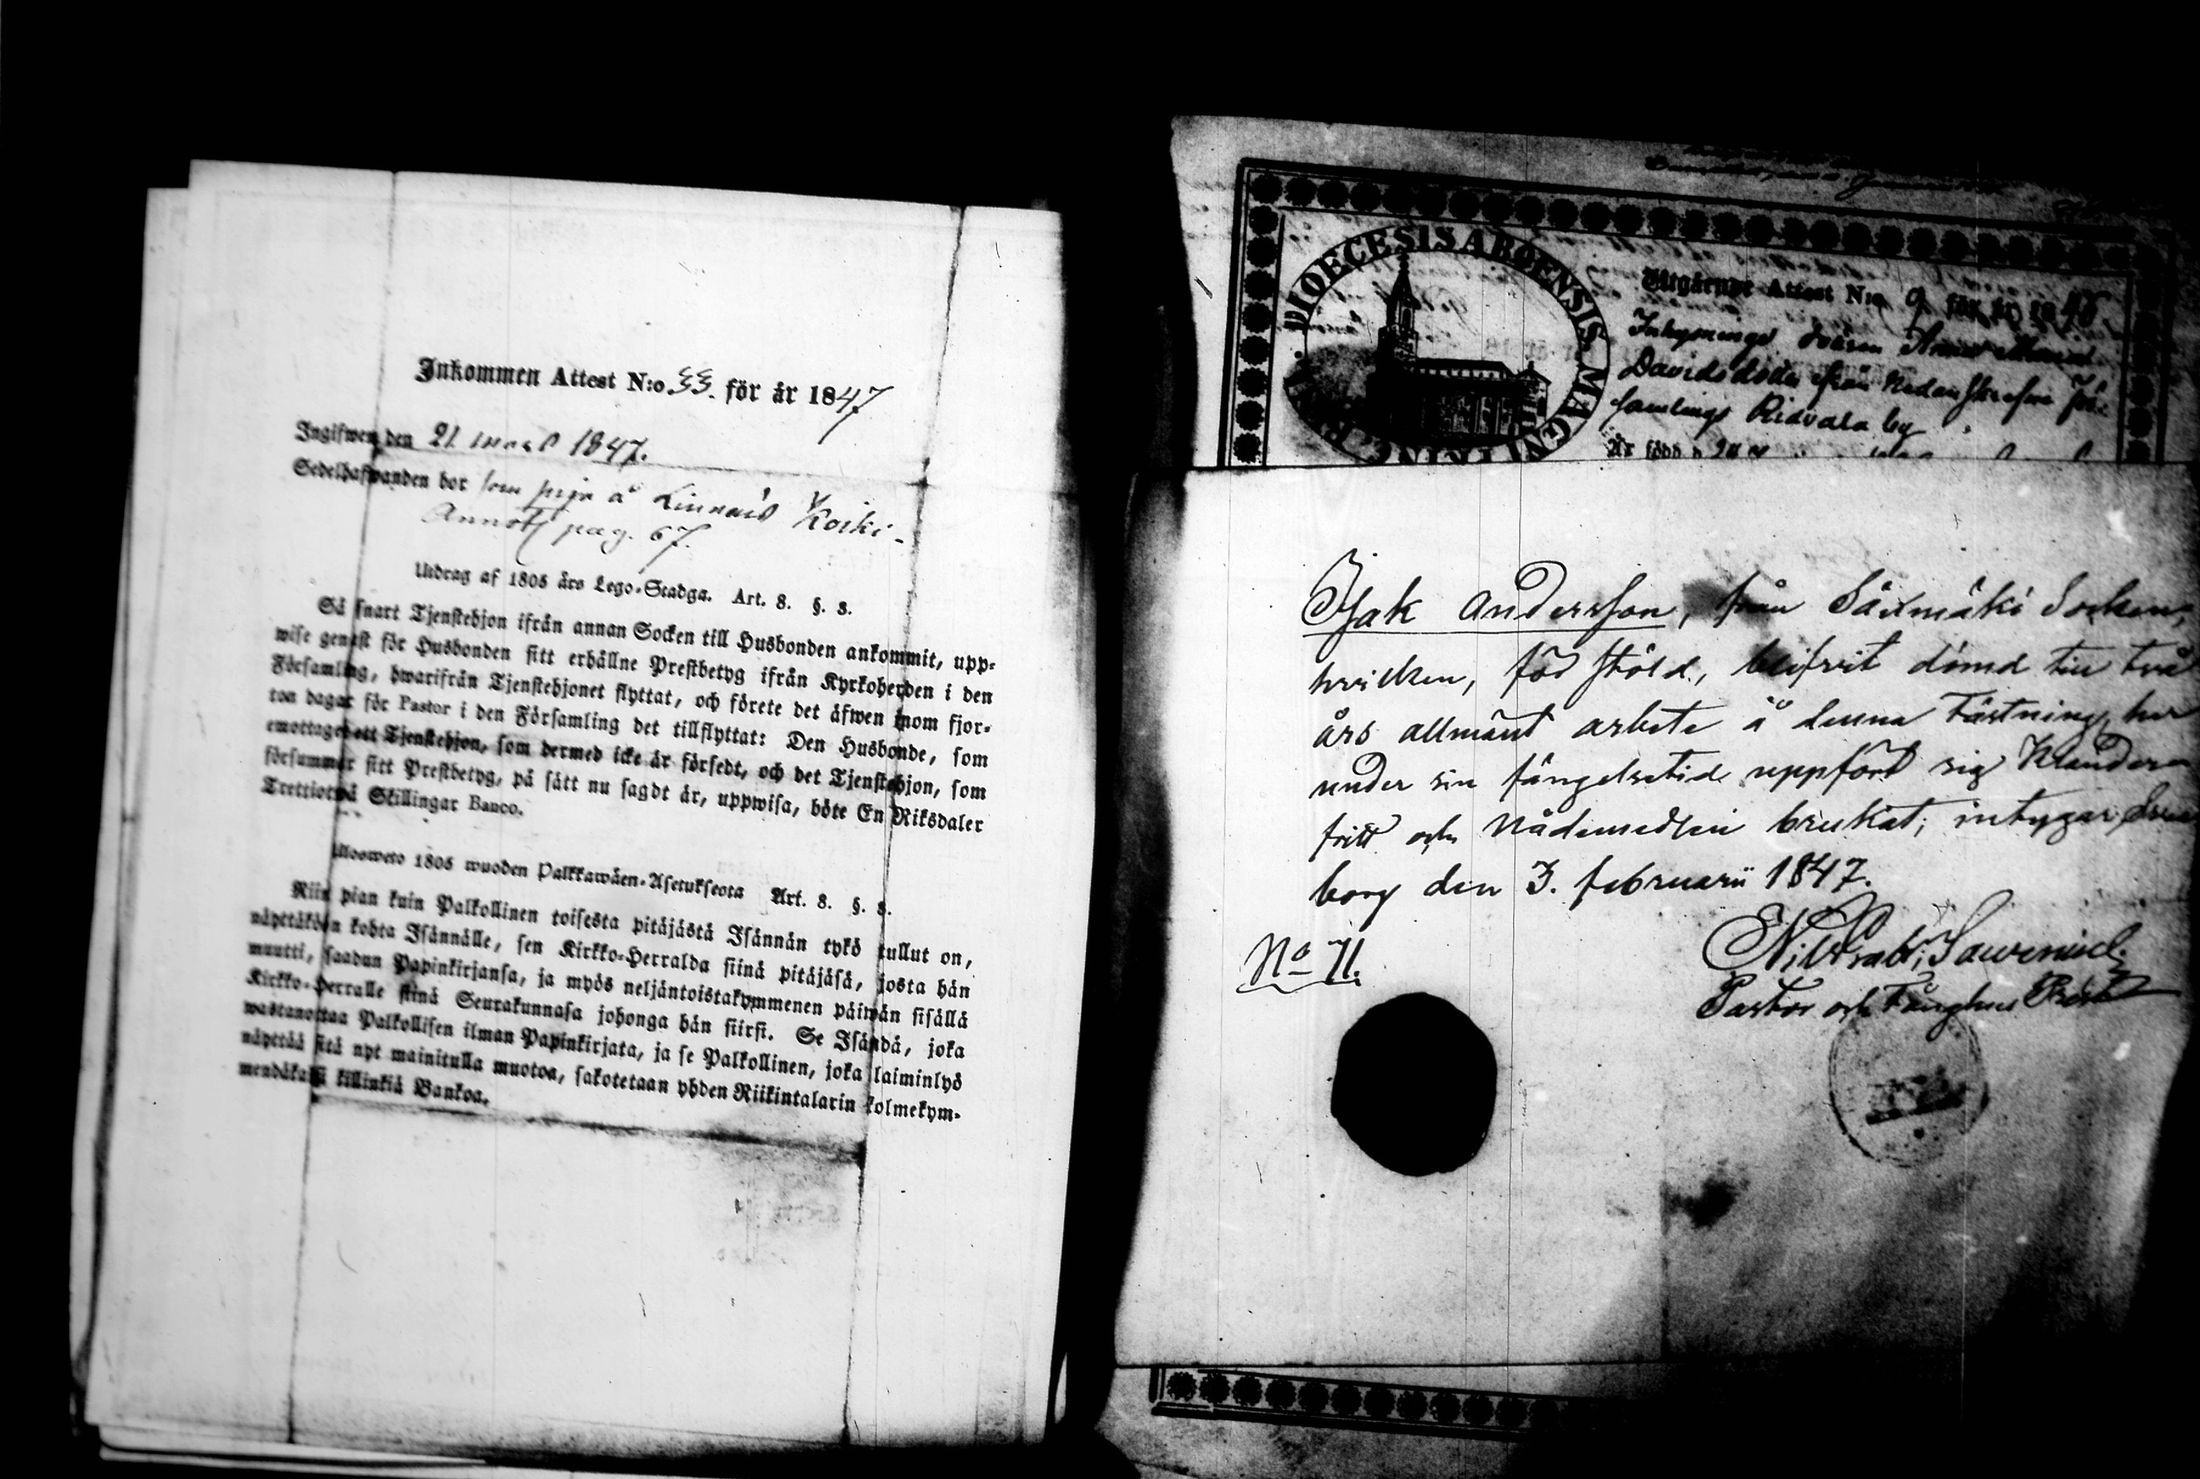 Inkommen Attest N:o 33. för år 1847
Ingifwen den 21 mars 1847.
Sedelhafwanden bor som piga å Linnais Koski
Annot. pag. 67.
Utdrag af 1805 års Lego-Stadga. Art. 8. §. 3.
Så snart Tjenstehjon ifrån annan Socken till Husbonden ankommit, upp-
wise genast för Husbonden sitt erhållne Prestbetyg ifrån Kyrkoherden i den
Församling, hwarifrån Tjenstehjonet flyttat, och förete det äfwen inom fjor-
ton dagar för Pastor i den Församling det tillflyttat: Den Husbonde, som
emottager ett Tjenstehjon, som dermed icke är försedt, och det Tjenstehjon, som
försummar sitt Prestbetyg, på sätt nu sagdt är, uppwisa, böte En Riksdaler
Trettiotwå Skillingar Banco.
Ulosweto 1805 wuoden Palkkawäen-Asetuksesta Art. 8. §. 3.
Niin pian kuin Palkollinen toisesta pitäjästä Isännän tykö tullut on,
näyttäköön kohta Isännälle, sen Kirkko-Herralda siinä pitäjäsä, josta hän
muutti, saadun Papinkirjansa, ja myös neljäntoistakymmenen päiwän sisällä
Kirkko-Herralle siinä Seurakunnasa johonga hän siirsi. Se Isändä, joka
wastanottaa Palkollisen ilman Papinkirjata, ja se Palkollinen, joka laiminlyö
näyttää sitä nyt mainitulla muotoa, sakotetaan yhden Riikintalarin kolmekym-
mendäkaxi killinkiä Bankoa.
DIOECESIS ABOENSIS MAGNI
Utgående Attest N:o 9 för år 18
Inhysinges Enkan Anna
Davidsdotter från Nedanskrefne För-
samlings Ridvala by
Är född
Isak Andersson, från Sääxmäki Socken,
hvilken, för stöld, blifvit dömd till två
års allmänt arbete å denna Fästning, har
under sin fängelsetid uppfört sig klander-
fritt och Nådemedlen brukat; intygar, Svea-
borg den 3. februarii 1847.
No 71.
Pastor och Fånghus Prest